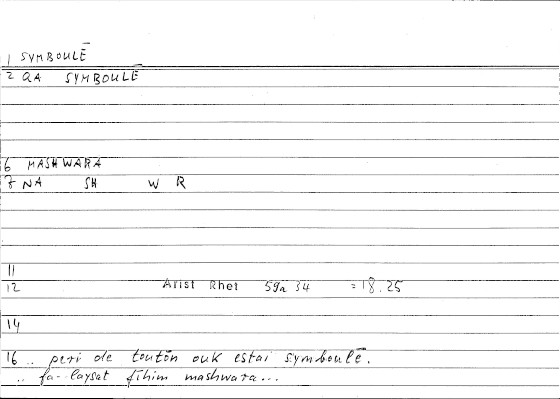 1 SYMBOULĒ
2 QA SYMBOULĒ
6 MASHWARA
7 NA SH W R
11
12 Arist Rhet 59a 34 =18.25
14
16 .. peri de toutōn ouk estai symboulē.
.. fa-laysat fīhim mashwara...